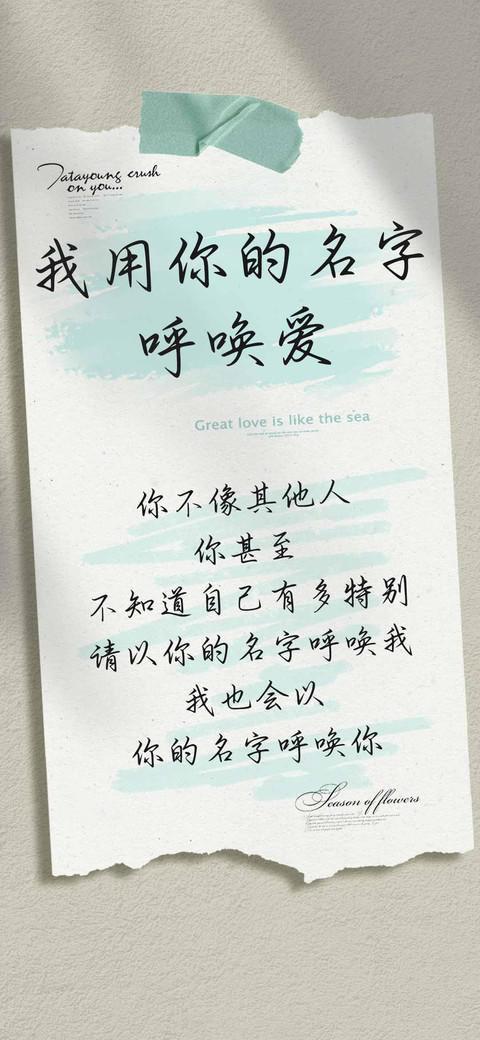 Tatayoung crush
on you...
我用你的名字
呼唤爱
Great love is like the sea
你不像其他人
你甚至
不知道自己有多特别
请以你的名字呼唤我
我也会以
你的名字呼唤你
Season of flowers